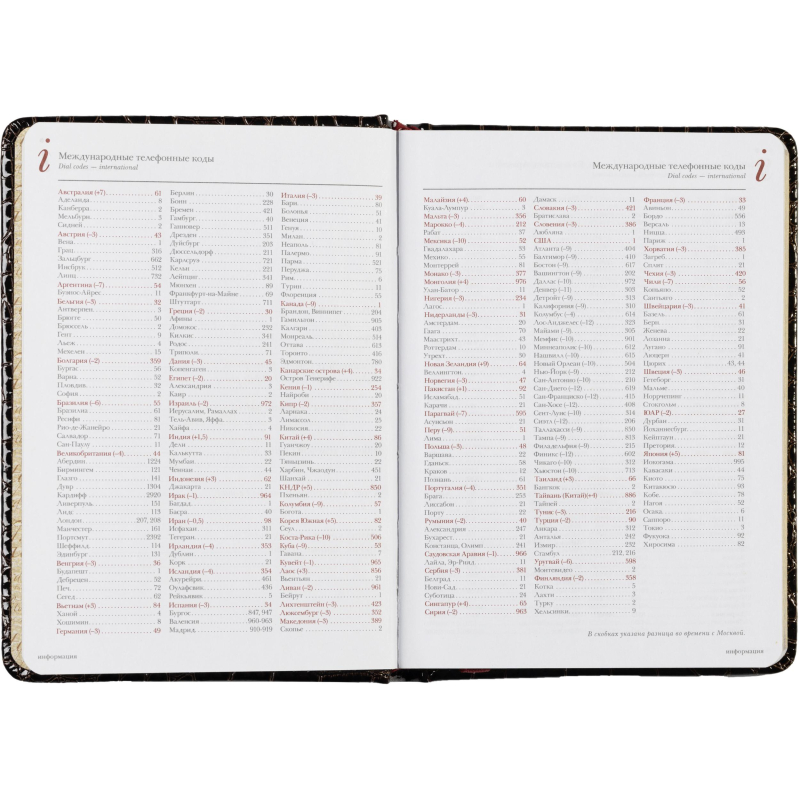 i
Международные телефонные коды
Dial codes — international
Австралия (+7) 61
Аделаида 8
Канберра 2
Мельбурн 3
Сидней 2
Австрия (–3) 43
Вена 1
Грац 316
Зальцбург 662
Инсбрук 512
Линц 732
Аргентина (–7) 54
Буэнос-Айрес 11
Бельгия (–3) 32
Антверпен 3
Брюгге 50
Брюссель 2
Гент 9
Льеж 4
Мехелен 15
Болгария (–2) 359
Бургас 56
Варна 52
Пловдив 32
София 2
Бразилия (–6) 55
Бразилиа 61
Ресифи 81
Рио-де-Жанейро 21
Сальвадор 71
Сан-Паулу 11
Великобритания (–4) 44
Абердин 1224
Бирмингем 121
Глазго 141
Дувр 1304
Кардифф 2920
Ливерпуль 151
Лидс 113
Лондон 207, 208
Манчестер 161
Портсмут 2392
Шеффилд 114
Эдинбург 131
Венгрия (–3) 36
Будапешт 1
Дебрецен 52
Печ 72
Сегед 62
Вьетнам (+3) 84
Ханой 4
Хошимин 8
Германия (–3) 49
Берлин 30
Бонн 228
Бремен 421
Гамбург 40
Ганновер 511
Дрезден 351
Дуйсбург 203
Дюссельдорф 211
Карлсруэ 721
Кельн 221
Лейпциг 341
Мюнхен 89
Франкфурт-на-Майне 69
Штутгарт 711
Греция (–2) 30
Афины 1
Домокос 232
Килкис 341
Родос 241
Триполи 71
Дания (–3) 45
Копенгаген 3
Египет (–2) 20
Александрия 3
Каир 2
Израиль (–2) 972
Иерусалим, Рамаллах 2
Тель-Авив, Яффа 3
Хайфа 4
Индия (+1,5) 91
Дели 11
Калькутта 33
Мумбаи 22
Ченнаи 44
Индонезия (+3) 62
Джакарта 21
Ирак (–1) 964
Багдад 1
Басра 40
Иран (–0,5) 98
Исфахан 311
Тегеран 21
Ирландия (–4) 353
Дублин 1
Корк 21
Исландия (–4) 354
Акурейри 461
Оулафсвик 436
Рейкьявик 5
Испания (–3) 34
Бургос 847, 947
Валенсия 960-963
Мадрид 910-919
Италия (–3) 39
Бари 80
Болонья 51
Венеция 41
Генуя 10
Милан 2
Неаполь 81
Палермо 91
Парма 521
Перуджа 75
Рим 6
Турин 11
Флоренция 55
Канада (–9) 1
Брандон, Виннипег 204
Гамильтон 905
Калгари 403
Монреаль 514
Оттава 613
Торонто 416
Эдмонтон 780
Канарские острова (–4) 34
Остров Тенерифе 922
Кения (–1) 254
Найроби 20
Кипр (–2) 357
Ларнака 24
Лимасол 25
Никосия 22
Китай (+4) 86
Гуанчжоу 20
Пекин 10
Тяньцзинь 22
Харбин, Чжаодун 451
Шанхай 21
КНДР (+5) 850
Пхеньян 2
Колумбия (–9) 57
Богота 1
Корея Южная (+5) 82
Сеул 2
Коста-Рика (–10) 506
Куба (–9) 53
Гавана 7
Кувейт (–1) 965
Лаос (+3) 856
Вьентьян 21
Ливан (–2) 961
Бейрут 1
Лихтенштейн (–3) 423
Люксембург (–3) 352
Македония (–3) 389
Скопье 2
информация
i
Международные телефонные коды
Dial codes — international
Малайзия (+4) 60
Куала-Лумпур 3
Мальта (–3) 356
Марокко (–4) 212
Рабат 37
Мексика (–10) 52
Гвадалахара 33
Мехико 55
Монтеррей 81
Монако (–3) 377
Монголия (+4) 976
Улан-Батор 11
Нигерия (–3) 234
Лагос 1
Нидерланды (–3) 31
Амстердам 20
Гаага 70
Маастрихт 43
Роттердам 10
Утрехт 30
Новая Зеландия (+9) 64
Веллингтон 4
Норвегия (–3) 47
Пакистан (+1) 92
Исламабад 51
Карачи 21
Парагвай (–7) 595
Асунсьон 21
Перу (–9) 51
Лима 1
Польша (–3) 48
Варшава 22
Гданьск 58
Краков 12
Познань 61
Португалия (–4) 351
Брага 253
Лиссабон 21
Порту 22
Румыния (–2) 40
Александрия 247
Бухарест 21
Констанца, Олимп 241
Саудовская Аравия (–1) 966
Лайла, Эр-Рияд 11
Сербия 381
Белград 11
Нови-Сад 21
Суботица 24
Сингапур (+4) 65
Сирия (–2) 963
Дамаск 11
Словакия (–3) 421
Братислава 2
Словения (–3) 386
Любляна 1
США 1
Атланта (–9) 404
Балтимор (–9) 410
Бостон (–9) 617
Вашингтон (–9) 202
Даллас (–10) 972
Денвер (–11) 303
Детройт (–9) 313
Калифорния (–9) 310
Колумбус (–9) 614
Лос-Анджелес (–12) 323
Майами (–9) 305
Мемфис (–10) 901
Миннеаполис (–10) 612
Нашвилл (–10) 615
Новый Орлеан (–10) 504
Нью-Йорк (–9) 212
Сан-Антонио (–10) 210
Сан-Диего (–12) 619
Сан-Франциско (–12) 415
Сан-Хосе (–12) 408
Сент-Луис (–10) 314
Сиэтл (–12) 206
Таллахасси (–9) 850
Тампа (–9) 813
Филадельфия (–9) 215
Финикс (–12) 602
Чикаго (–10) 312
Хьюстон (–10) 713
Таиланд (+3) 66
Бангкок 2
Тайвань (Китай)(+4) 886
Тайпей 2
Тунис (–3) 216
Турция (–2) 90
Анкара 312
Анталья 242
Измир 232
Стамбул 212, 216
Уругвай (–6) 598
Монтевидео 2
Финляндия (–2) 358
Котка 5
Лахти 3
Турку 2
Хельсинки 9
Франция (–3) 33
Авиньон 49
Бордо 556
Версаль 13
Ницца 493
Париж 1
Хорватия (–3) 385
Загреб 1
Сплит 21
Чехия (–3) 420
Чили (–7) 56
Консепсьон 52
Сантьяго 2
Швейцария (–3) 41
Базель 61
Берн 31
Женева 22
Лозанна 21
Лугано 91
Люцерн 41
Цюрих 43,44
Швеция (–3) 46
Гетеборг 31
Мальме 40
Норрчепинг 11
Стокгольм 8
ЮАР (–2) 27
Дурбан 31
Йоханнесбург 11
Кейптаун 21
Претория 12
Япония (+5) 81
Иокогама 995
Кавасаки 44
Киото 75
Китакюсю 93
Кобе 78
Нагоя 52
Осака 6
Саппоро 11
Токио 3
Фукуока 92
Хиросима 82
В скобках указана разница во времени с Москвой.
информация